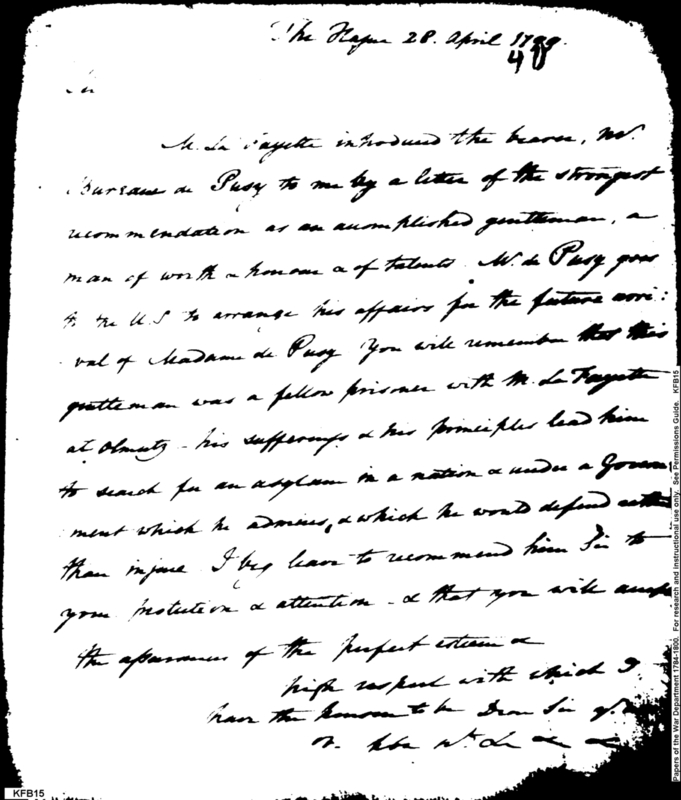 The Hague 28. April 1799.
Sir
M. La Fayette introduced the bearer, Mr.
Bureau de Pusy to me by a letter of the strongest
recommendation as an acomplished gentleman, a
man of worth & honour & of talents. Mr. de Pusy goes
to the U.S to arrange his affairs for the future arri:
val of Madame de Pusy You will remember that this
gentleman was a fellow prisoner with M. La Fayette
at Olmutz - his sufferings & his principles lead him
to search for an asylum in a nation & under a Govern
ment which he admires, & which he would defend rather
than injure I beg leave to recommend him Sir to
your protection & attention - & that you will accept
the assurances of the perfect esteem &
high respect with which I
have the honour to be Dear Sir
KFB15
Papers of the War Department 1784-1800. For research and instructional use only. See Permissions Guide. KFB15